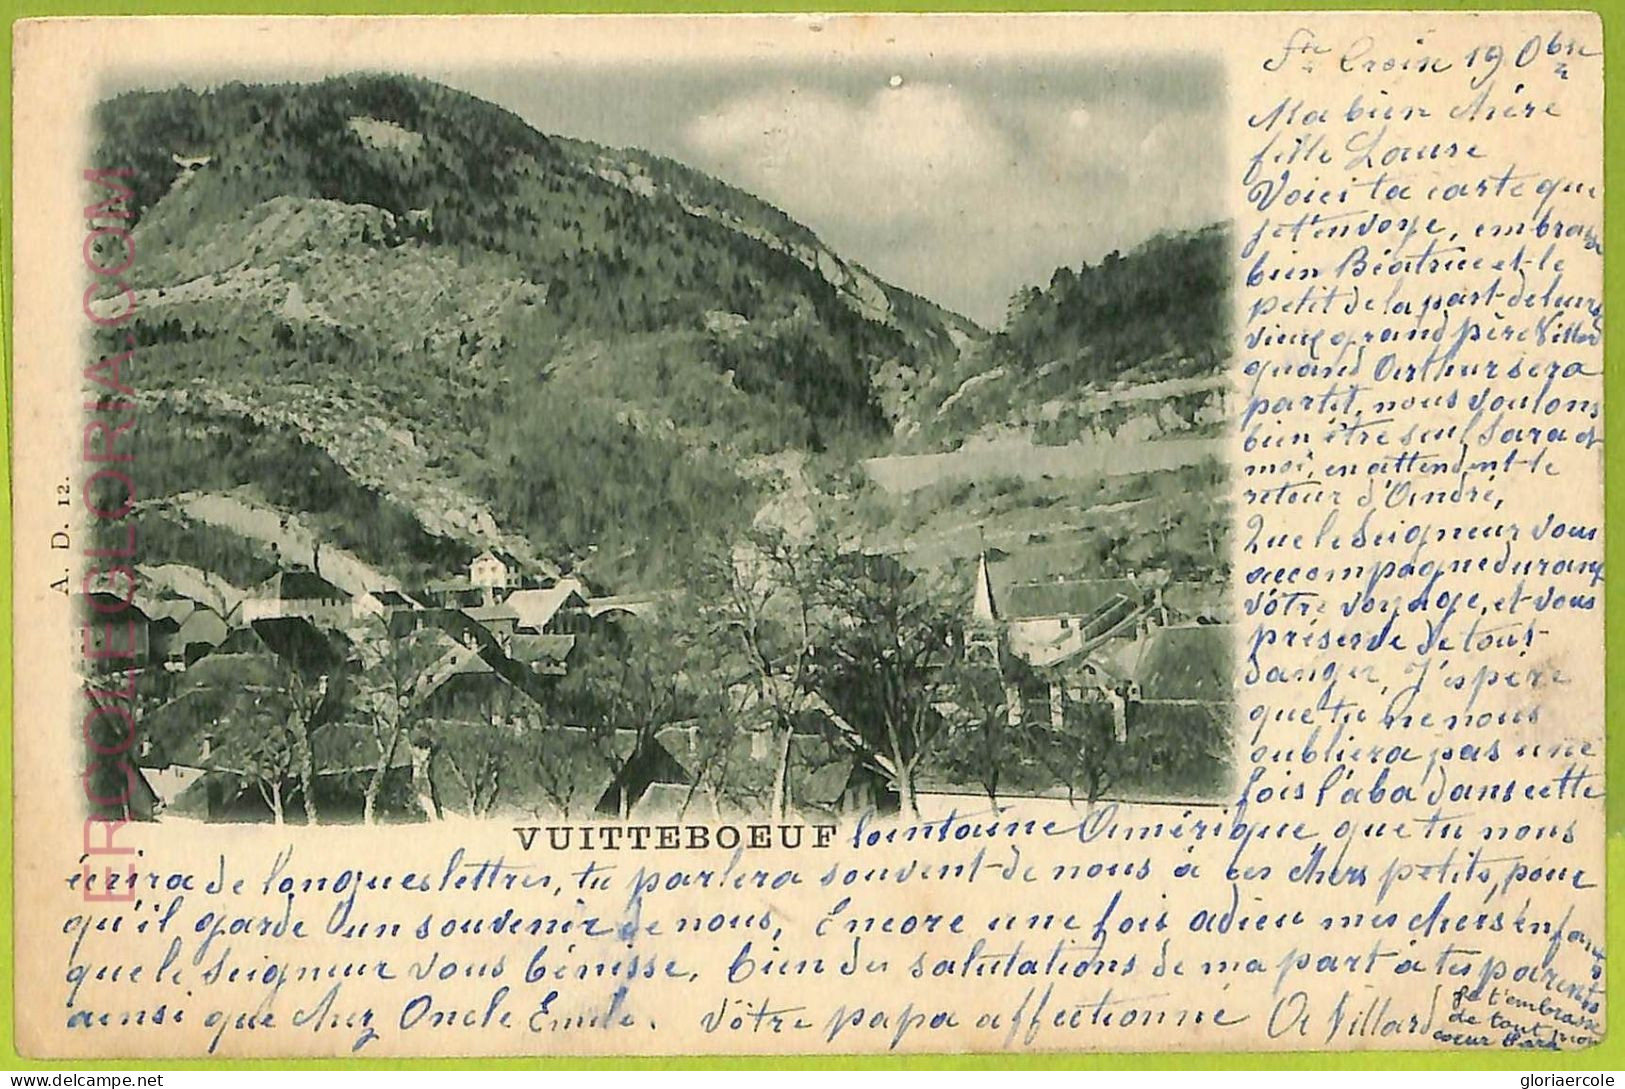 Ste Croix 19 Obre
Ma bien chère
fille Louise
Voici ta carte que
je t'envoye, embrasse
bien Béatrice et le
petit de la part de leurs
vieux grand père Villard
quand Arthur sera
partit, nous voulons
bien être seul Sara et
moi, en attendent le
retour d'André,
Que le Seigneur vous
accompagne durant
vôtre voyage, et vous
préserve de tout
danger, J'espère
que tu ne nous
oubliera pas une
fois l'aba dans cette
A. D. 12.
VUITTEBOEUF lointaine Amérique, que tu nous
écrira de longues lettres, tu parlera souvent de nous à ces chers petits, pour
qu'il garde un souvenir de nous, Encore une fois adieu mes chers enfants
que le Seigneur vous bénisse, bien des salutations de ma part à tes parents
ainsi que chez Oncle Emile. Vôtre papa affectionné A Villard
Je t'embrasse
de tout mon
coeur Sara
ERCOLEGLORIA.COM
© delcampe.net
gloriaercole